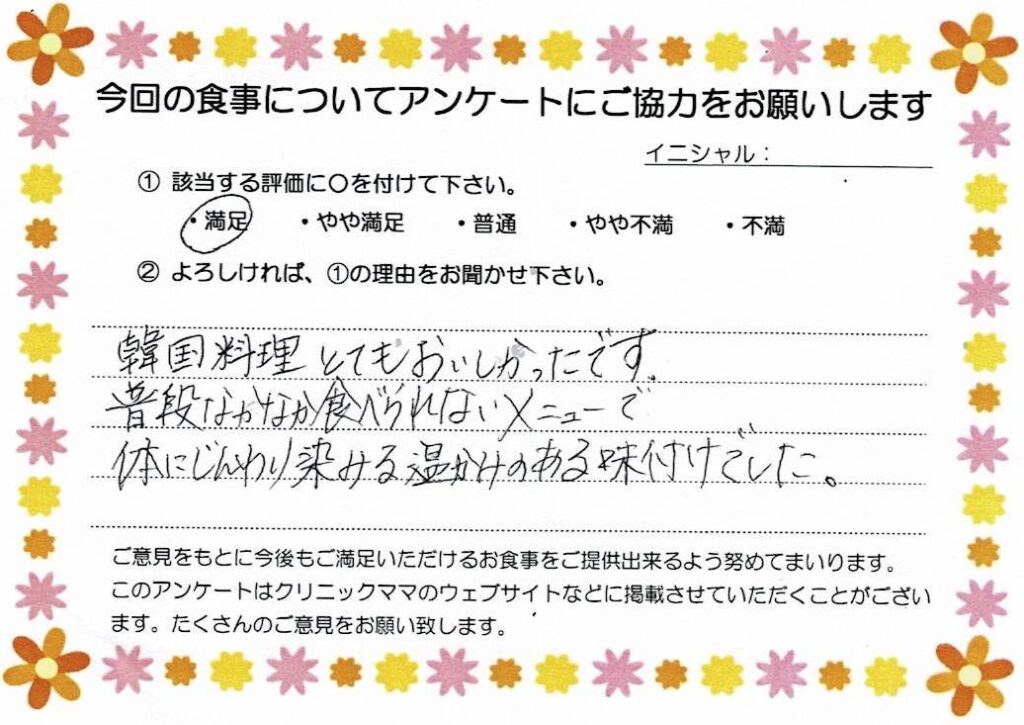 今回の食事についてアンケートにご協力をお願いします
イニシャル：
① 該当する評価に〇を付けて下さい。
・満足 ・やや満足 ・普通 ・やや不満 ・不満
② よろしければ、①の理由をお聞かせ下さい。
韓国料理とてもおいしかったです。
普段なかなか食べられないメニューで
体にじんわり染みる温かみのある味付けでした。
ご意見をもとに今後もご満足いただけるお食事をご提供出来るよう努めてまいります。
このアンケートはクリニックママのウェブサイトなどに掲載させていただくことがござい
ます。たくさんのご意見をお願い致します。